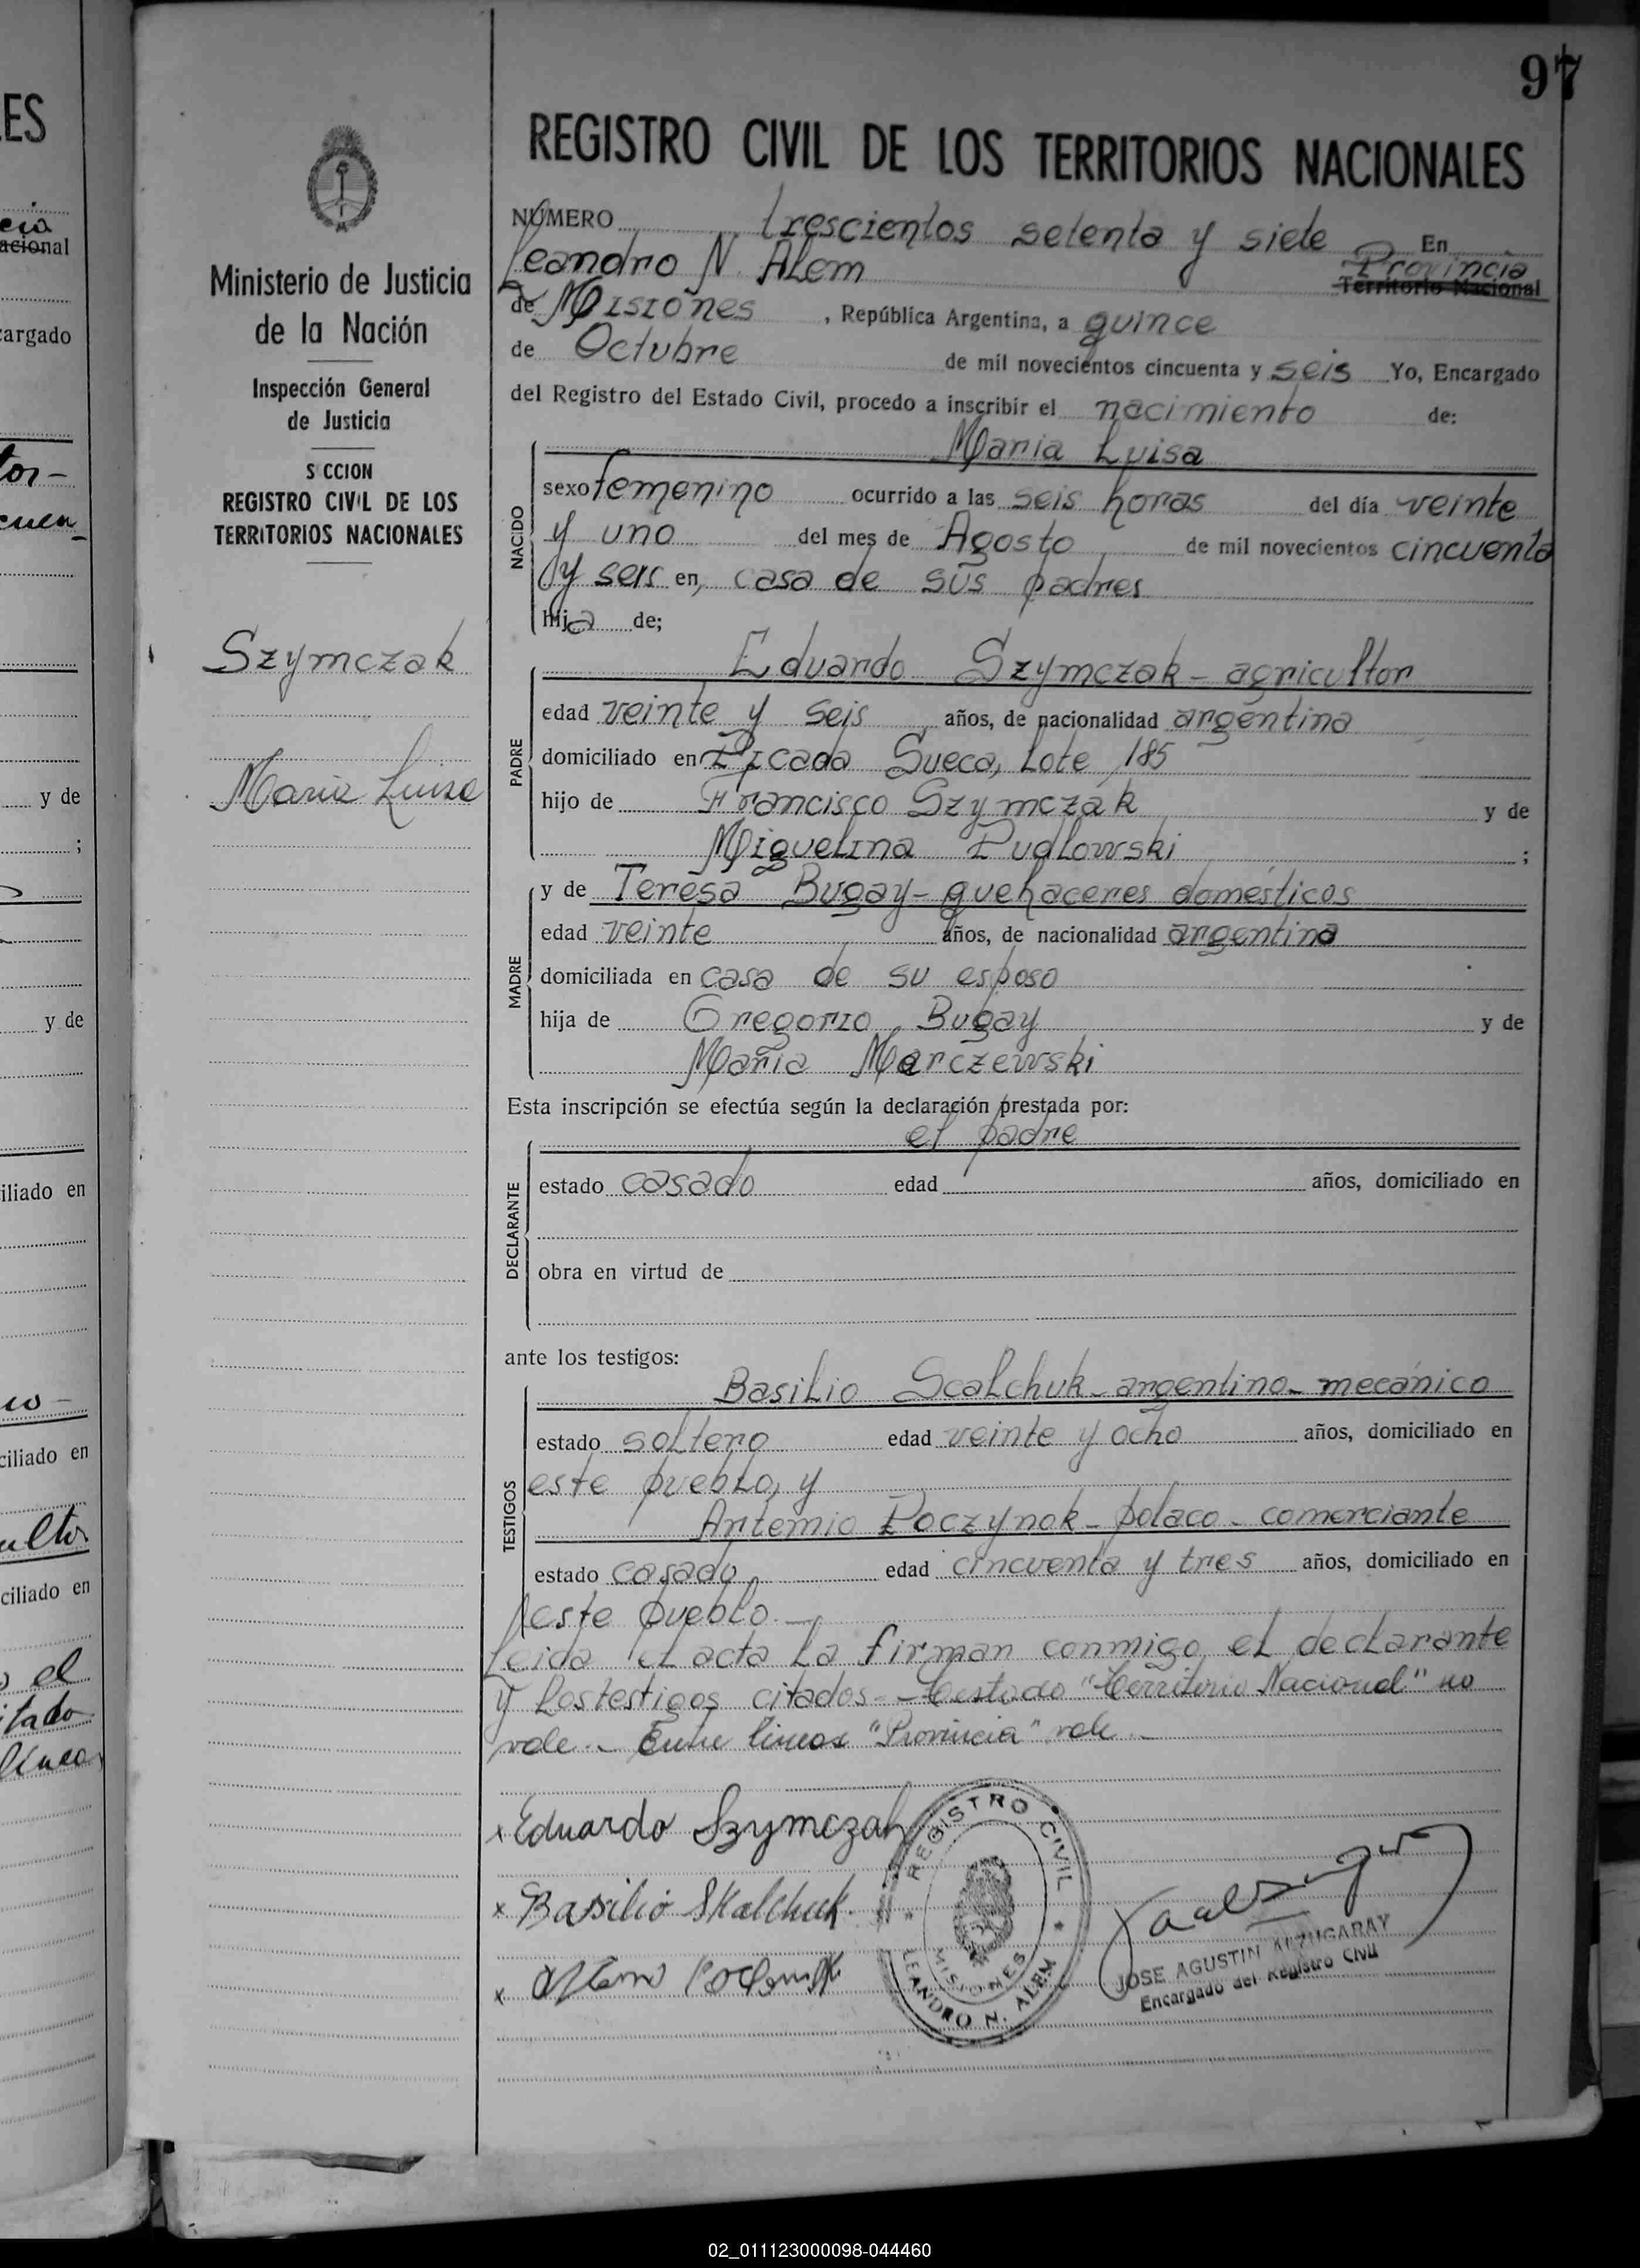 ES
cia
acional
cargado
tor-
cuen
y de
;
y de
iliado en
co -
ciliado en
ultor
ciliado en
el
itado
líneas
97
Ministerio de Justicia
de la Nación
Inspección General
de Justicia
S CCION
REGISTRO CIVIL DE LOS
TERRITORIOS NACIONALES
Szymczak
Maria Luisa
REGISTRO CIVIL DE LOS TERRITORIOS NACIONALES
NÚMERO trescientos setenta y siete En
Leandro N. Alem Provincia
Territorio Nacional
de Misiones , República Argentina, a quince
de Octubre de mil novecientos cincuenta y seis Yo, Encargado
del Registro del Estado Civil, procedo a inscribir el nacimiento de:
Maria Luisa
NACIDO
sexo femenino ocurrido a las seis horas del día veinte
y uno del mes de Agosto de mil novecientos cincuenta
y seis en, casa de sus padres
hija de;
Eduardo Szymczak - agricultor
PADRE
edad veinte y seis años, de nacionalidad argentina
domiciliado en Picada Sueca, Lote 185
hijo de Francisco Szymczak y de
Miguelina Pudlowski ;
y de Teresa Bugay - quehaceres domésticos
MADRE
edad veinte años, de nacionalidad argentina
domiciliada en casa de su esposo
hija de Gregorio Bugay y de
Maria Marczewski
Esta inscripción se efectúa según la declaración prestada por:
el padre
DECLARANTE
estado casado edad años, domiciliado en
obra en virtud de
ante los testigos:
Basilio Scalchuk - argentino - mecánico
TESTIGOS
estado soltero edad veinte y ocho años, domiciliado en
este pueblo, y
Artemio Poczynok - polaco - comerciante
estado casado edad cincuenta y tres años, domiciliado en
este pueblo.-
Leida el acta la firman conmigo, el declarante
y los testigos citados.- Testado "Territorio Nacional" no
vale.- Entre lineas "Provincia" vale.-
x Eduardo Szymczak
x Basilio Skalchuk
x
REGISTRO CIVIL
MISIONES
LEANDRO N. ALEM
JOSE AGUSTIN ALZUGARAY
Encargado del Registro Civil
02_011123000098-044460